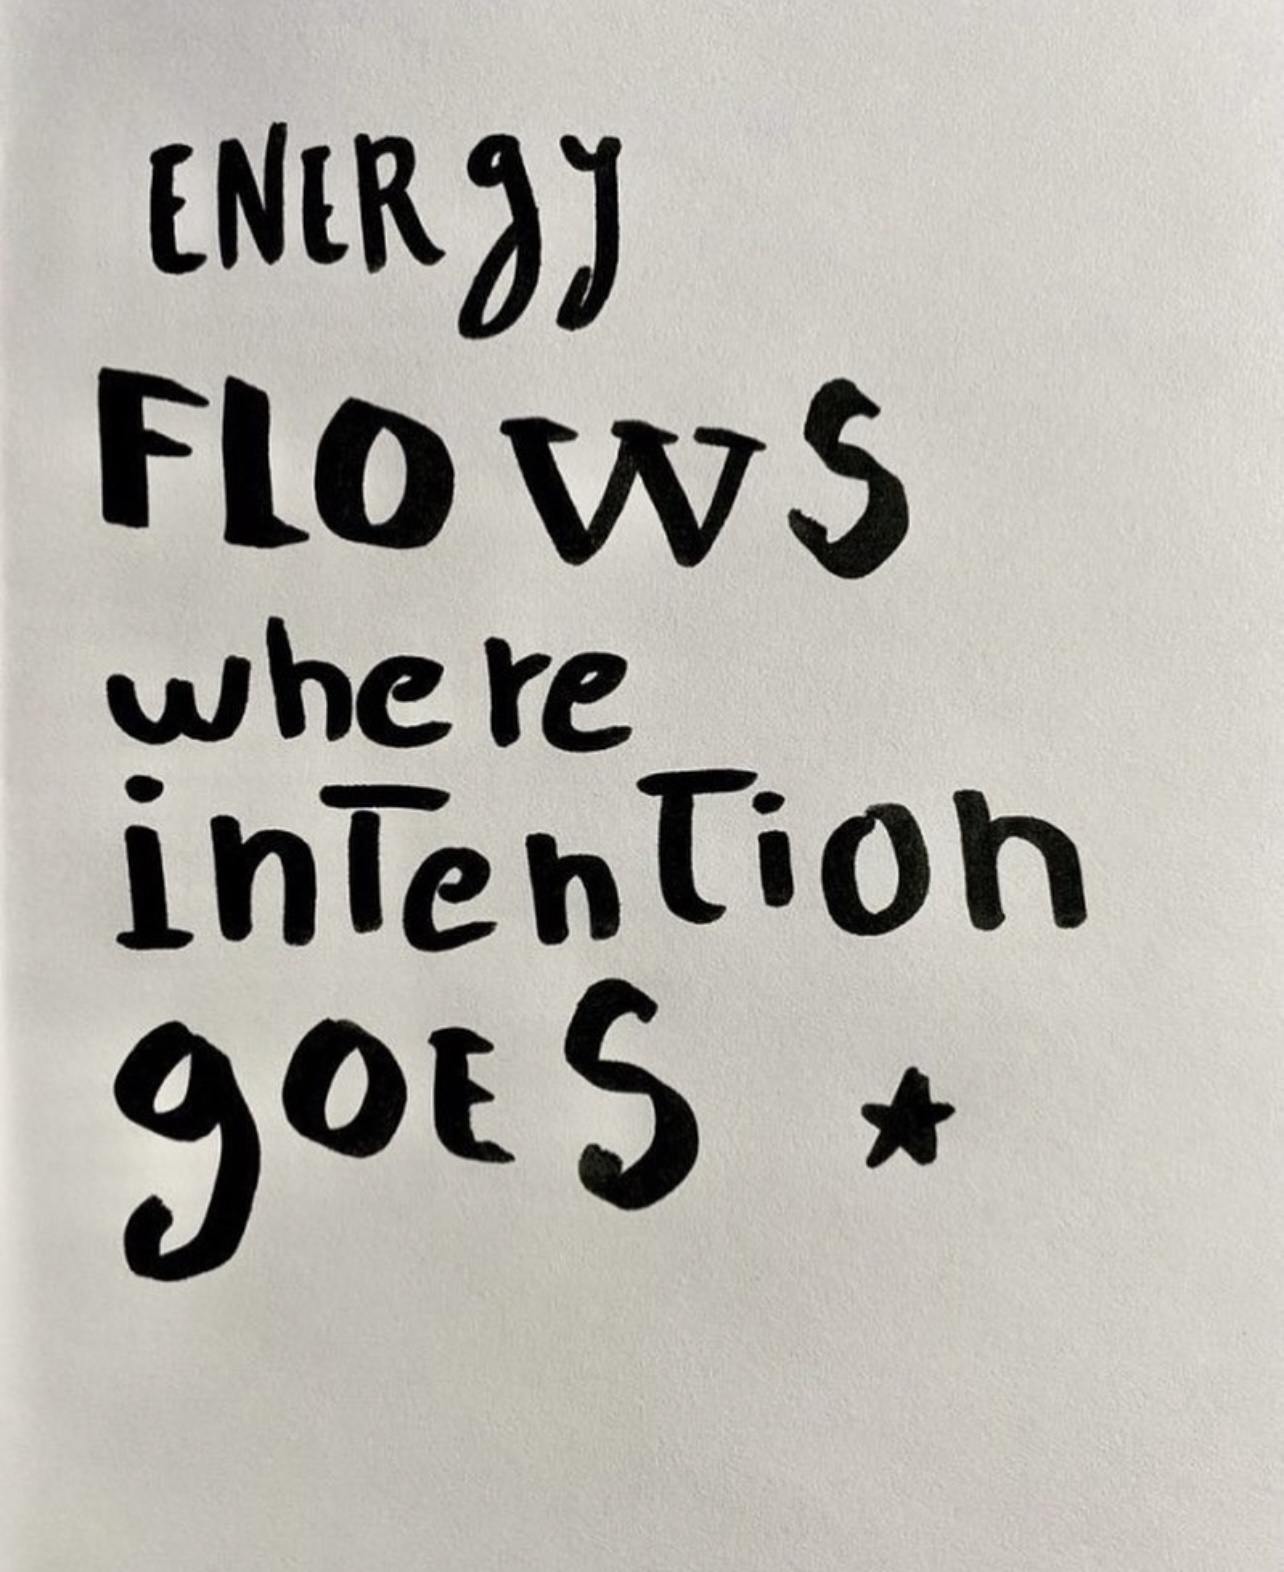 ENERgy
FLOWS
where
inTenTion
gOES